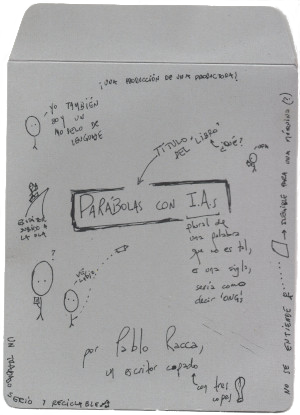 ¿UNA PRODUCCIÓN DE UNA PRODUCTORA?
YO TAMBIÉN
SOY UN
MODELO DE
LENGUAJE
TÍTULO
DEL "LIBRO"
¿QUÉ?
PARÁBOLAS CON I.A.s
plural de
una palabra
que no es tal,
es una sigla,
sería como
decir ONGs
?
por Pablo Racca,
un escritor copado
con tres
copas
UN TRABAJO
SERIO Y RECICLABLE
NO SE ENTIENDE
PARA UNA